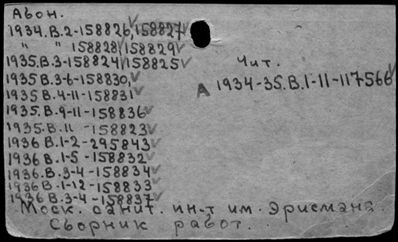 Абон.
1934.В.2-158826, 158827
" " 158828, 158829
1935.В.3-158824, 158825
1935 В.3-6-158830,
1935 В.4-11-158831
1935.В.9-11-158836
1935.В.11 -158823
1936 В.1-2-295843
1936 В.1-5-158832
1936.В.3-4-158834
1936 В.1-12-158833
1936 В.3-4-158837
Чит.
А 1934-35.В.1-11-117566
Моск. санит. ин-т им. Эрисмана.
Сборник работ.